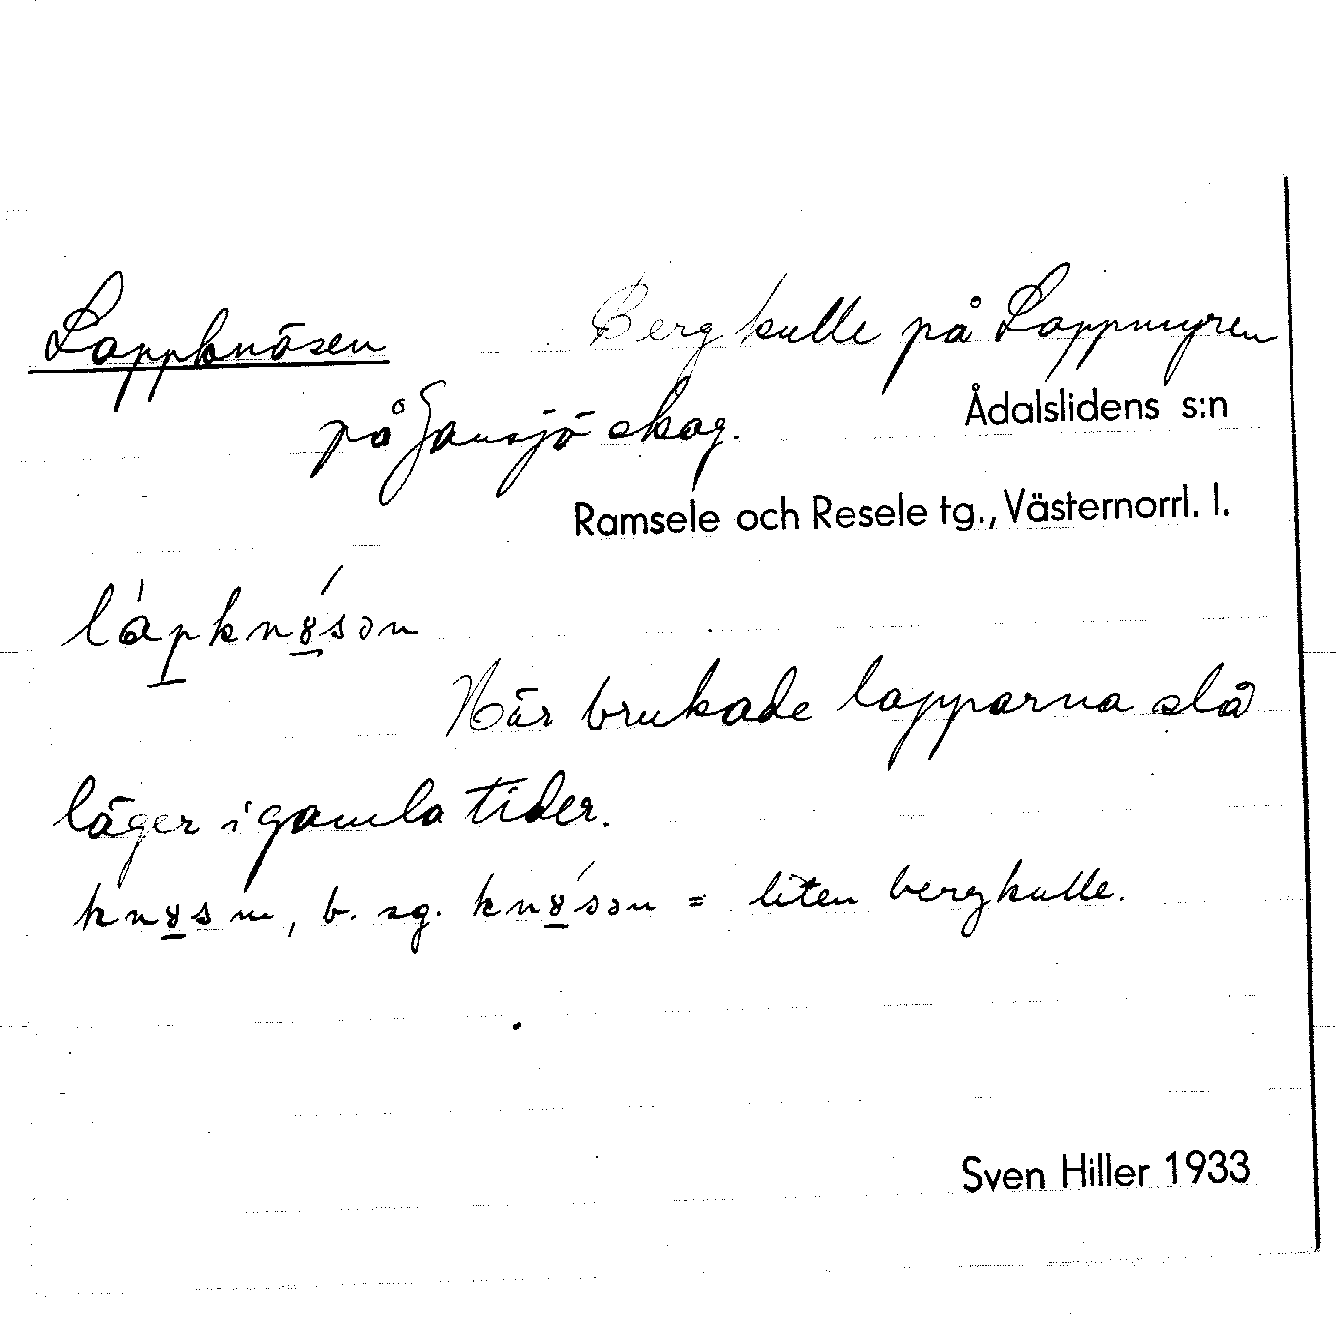 Lappknösen Bergkulle på Lappmyren
på Jansjö skog. Ådalslidens s:n
Ramsele och Resele tg., Västernorrl. l.
lápkn8́sən
Här brukade lapparna slå
läger i gamla tider.
kn8sn, b. sg. kn8́sən = liten bergkulle.
Sven Hiller 1933